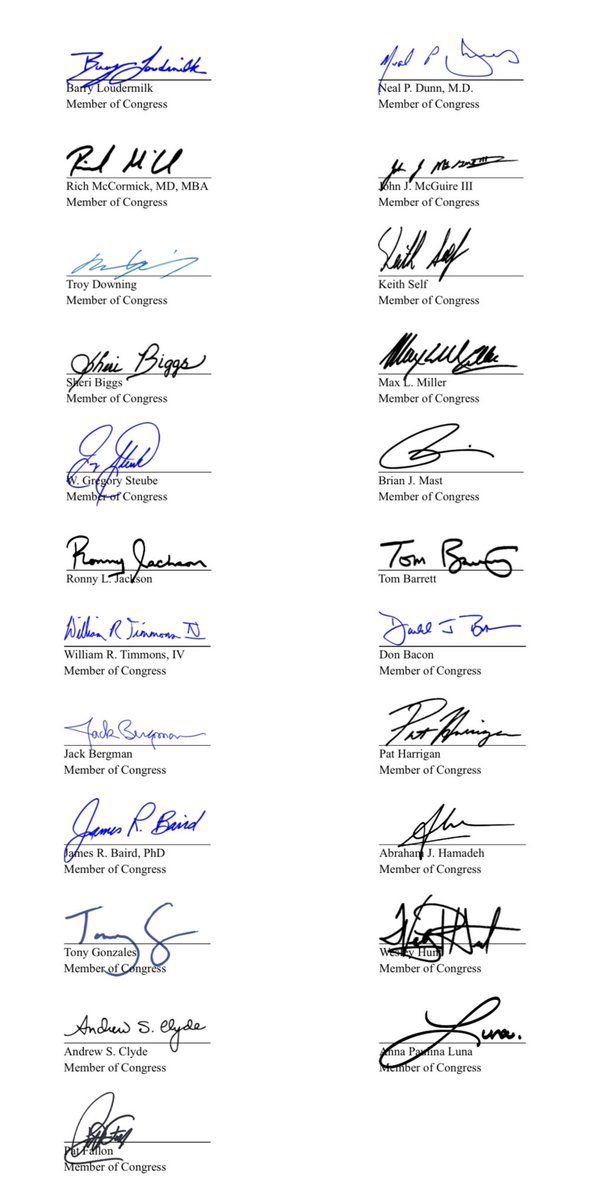 Barry Loudermilk
Barry Loudermilk
Member of Congress
Neal P. Dunn, M.D.
Member of Congress
Rich McCormick, MD, MBA
Member of Congress
John J. McGuire III
Member of Congress
Troy Downing
Member of Congress
Keith Self
Keith Self
Member of Congress
Sheri Biggs
Sheri Biggs
Member of Congress
Max L. Miller
Member of Congress
W. Gregory Steube
Member of Congress
Brian J. Mast
Member of Congress
Ronny Jackson
Ronny L. Jackson
Tom Barrett
Tom Barrett
William R Timmons IV
William R. Timmons, IV
Member of Congress
Don Bacon
Member of Congress
Jack Bergman
Jack Bergman
Member of Congress
Pat Harrigan
Pat Harrigan
Member of Congress
James R. Baird
James R. Baird, PhD
Member of Congress
Abraham J. Hamadeh
Member of Congress
Tony Gonzales
Member of Congress
Wesley Hunt
Member of Congress
Andrew S. Clyde
Andrew S. Clyde
Member of Congress
Luna.
Anna Paulina Luna
Member of Congress
Pat Fallon
Member of Congress